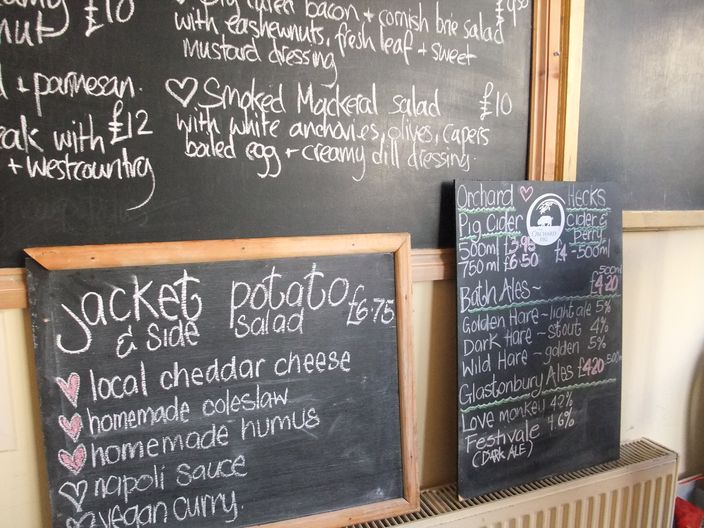 £10
nut
+ parmesan.
with £12
+ westcountry
bacon + cornish brie salad
with cashewnuts, fresh leaf + sweet
mustard dressing
Smoked Mackeral salad £10
with white anchovies, olives, capers
boiled egg + creamy dill dressing.
Jacket potato £6.75
& side salad
local cheddar cheese
homemade coleslaw
homemade humus
napoli sauce
vegan curry.
Orchard
Pig Cider
500ml £3.95
750ml £6.50
ORCHARD PIG
Hecks
Cider &
Perry
£4 - 500ml
Bath Ales ~ 500ml £4.20
Golden Hare ~ light ale 5%
Dark Hare ~ stout 4%
Wild Hare ~ golden 5%
Glastonbury Ales £4.20 500ml
Love monkey 4.2%
Festivale 4.6%
(DARK ALE)